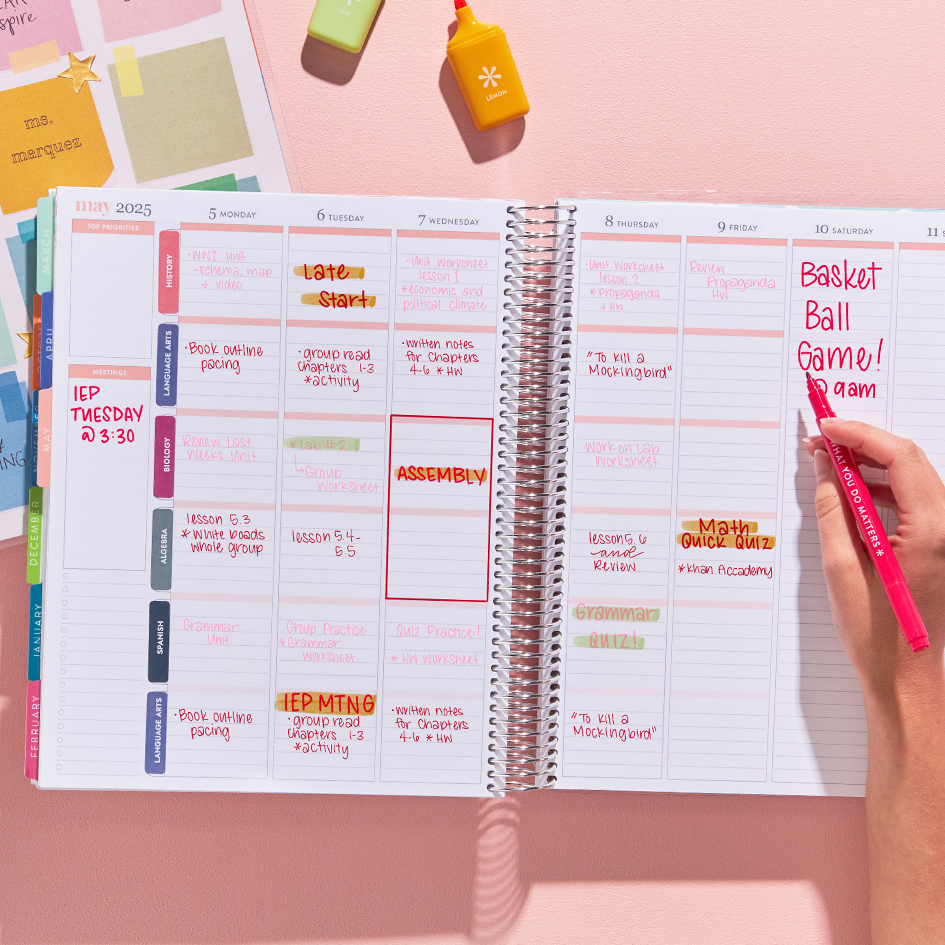 spire
ms.
marquez
LEMON
MARCH
APRIL
MAY
NOVEMBER
DECEMBER
JANUARY
FEBRUARY
may 2025
TOP PRIORITIES
MEETINGS
IEP
TUESDAY
@ 3:30
HISTORY
LANGUAGE ARTS
BIOLOGY
ALGEBRA
SPANISH
LANGUAGE ARTS
5 MONDAY
• WWI Unit
-schema, map
+ video
• Book outline
pacing
Review Last
Weeks Unit
lesson 5.3
* White boads
whole group
Grammar
Unit
• Book outline
pacing
6 TUESDAY
Late
Start
• group read
chapters 1-3
*activity
* Lab #2
↳ Group
Worksheet
lesson 5.4-
5.5
Group Practice
*Grammar
Worksheet
IEP MTNG
• group read
chapters 1-3
*activity
7 WEDNESDAY
• Unit Worksheet
lesson 1
* economic and
political climate
• Written notes
for Chapters
4-6 * HW
ASSEMBLY
Quiz Practice!
* HW Worksheet
• Written notes
for Chapters
4-6 * HW
8 THURSDAY
• Unit Worksheet
lesson 2
* Propaganda
+ HW
"To kill a
Mockingbird"
Work on Lab
Worksheet
lesson 5.6
and
Review
Grammar
Quiz!
"To kill a
Mockingbird"
9 FRIDAY
Review
Propaganda
HW
Math
Quick Quiz
*Khan Accademy
10 SATURDAY
Basket
Ball
Game!
@ 9am
11 S
WHAT YOU DO MATTERS *